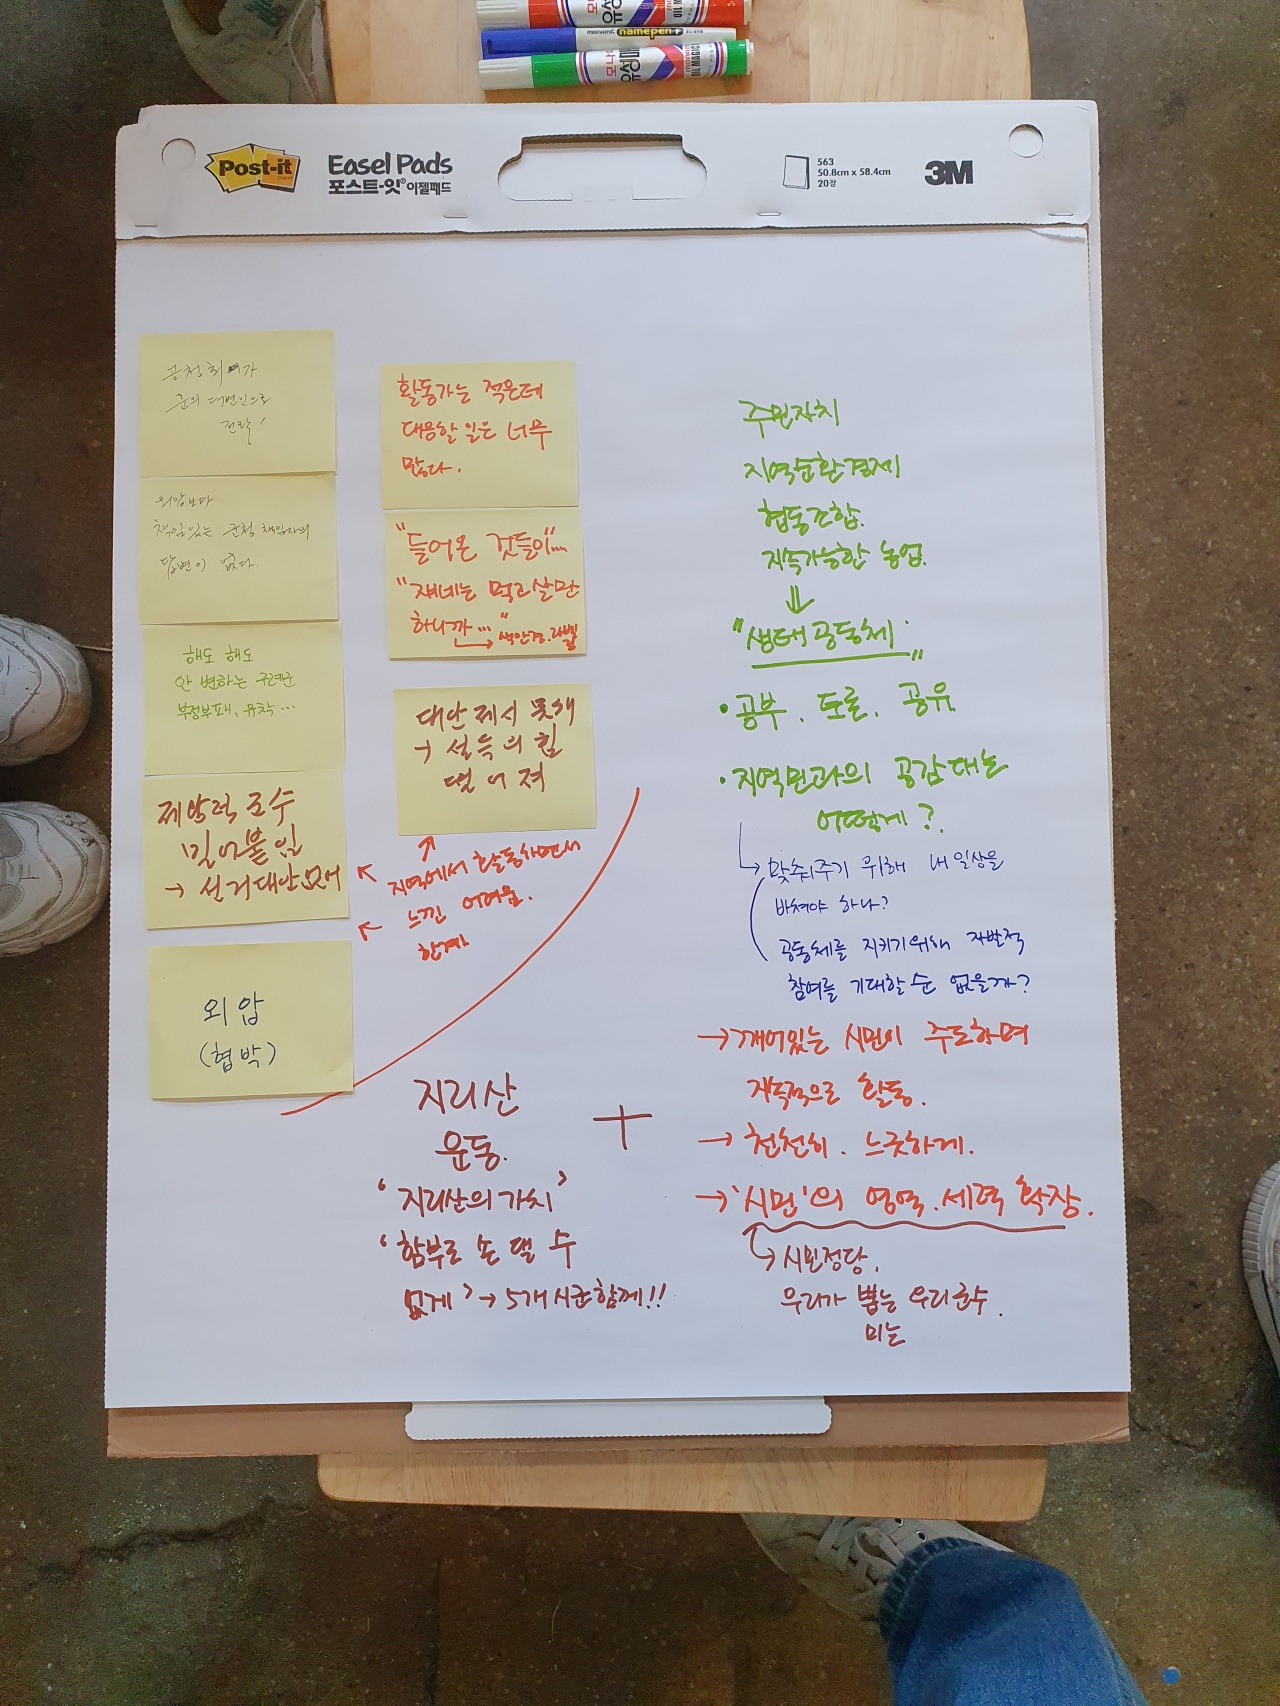 모나미
유성매직
OIL MAGIC
monami
namepen
모나미
유성매직
monami
OIL MAGIC
Post-it
Easel Pads
포스트-잇® 이젤패드
563
50.8cm x 58.4cm
20장
3M
군의 대변인으로
전락!
외압보다
책임있는 군청 책임자의
답변이 없다.
해도 해도
안 변하는
부정부패, 유착...
제왕적 군수
밀어붙임
→ 선거대안 없어
외압
(협박)
활동가는 적은데
대응할 일은 너무
많다.
"들어온 것들이"...
"쟤네는 먹고살만
하니까..."
색안경.라벨
대안 제시 못해
→ 설득의 힘
떨어져
지역에서 활동하면서
느낀 어려움.
한계
지리산
운동.
'지리산의 가치'
'함부로 손 댈 수
없게' → 5개 시군함께!!
+
주민자치
지역순환경제
협동조합.
지속가능한 농업.
"생태공동체"
• 공부. 토론. 공유.
• 지역민과의 공감대는
어떻게?
맞춰주기 위해 내 일상을
바쳐야 하나?
공동체를 지키기위해 자발적
참여를 기대할 순 없을까?
→ 깨어있는 시민이 주도하며
지속적으로 활동.
→ 천천히. 느긋하게.
→ '시민'의 영역.세력 확장.
시민정당.
우리가 뽑는 우리군수.
미는